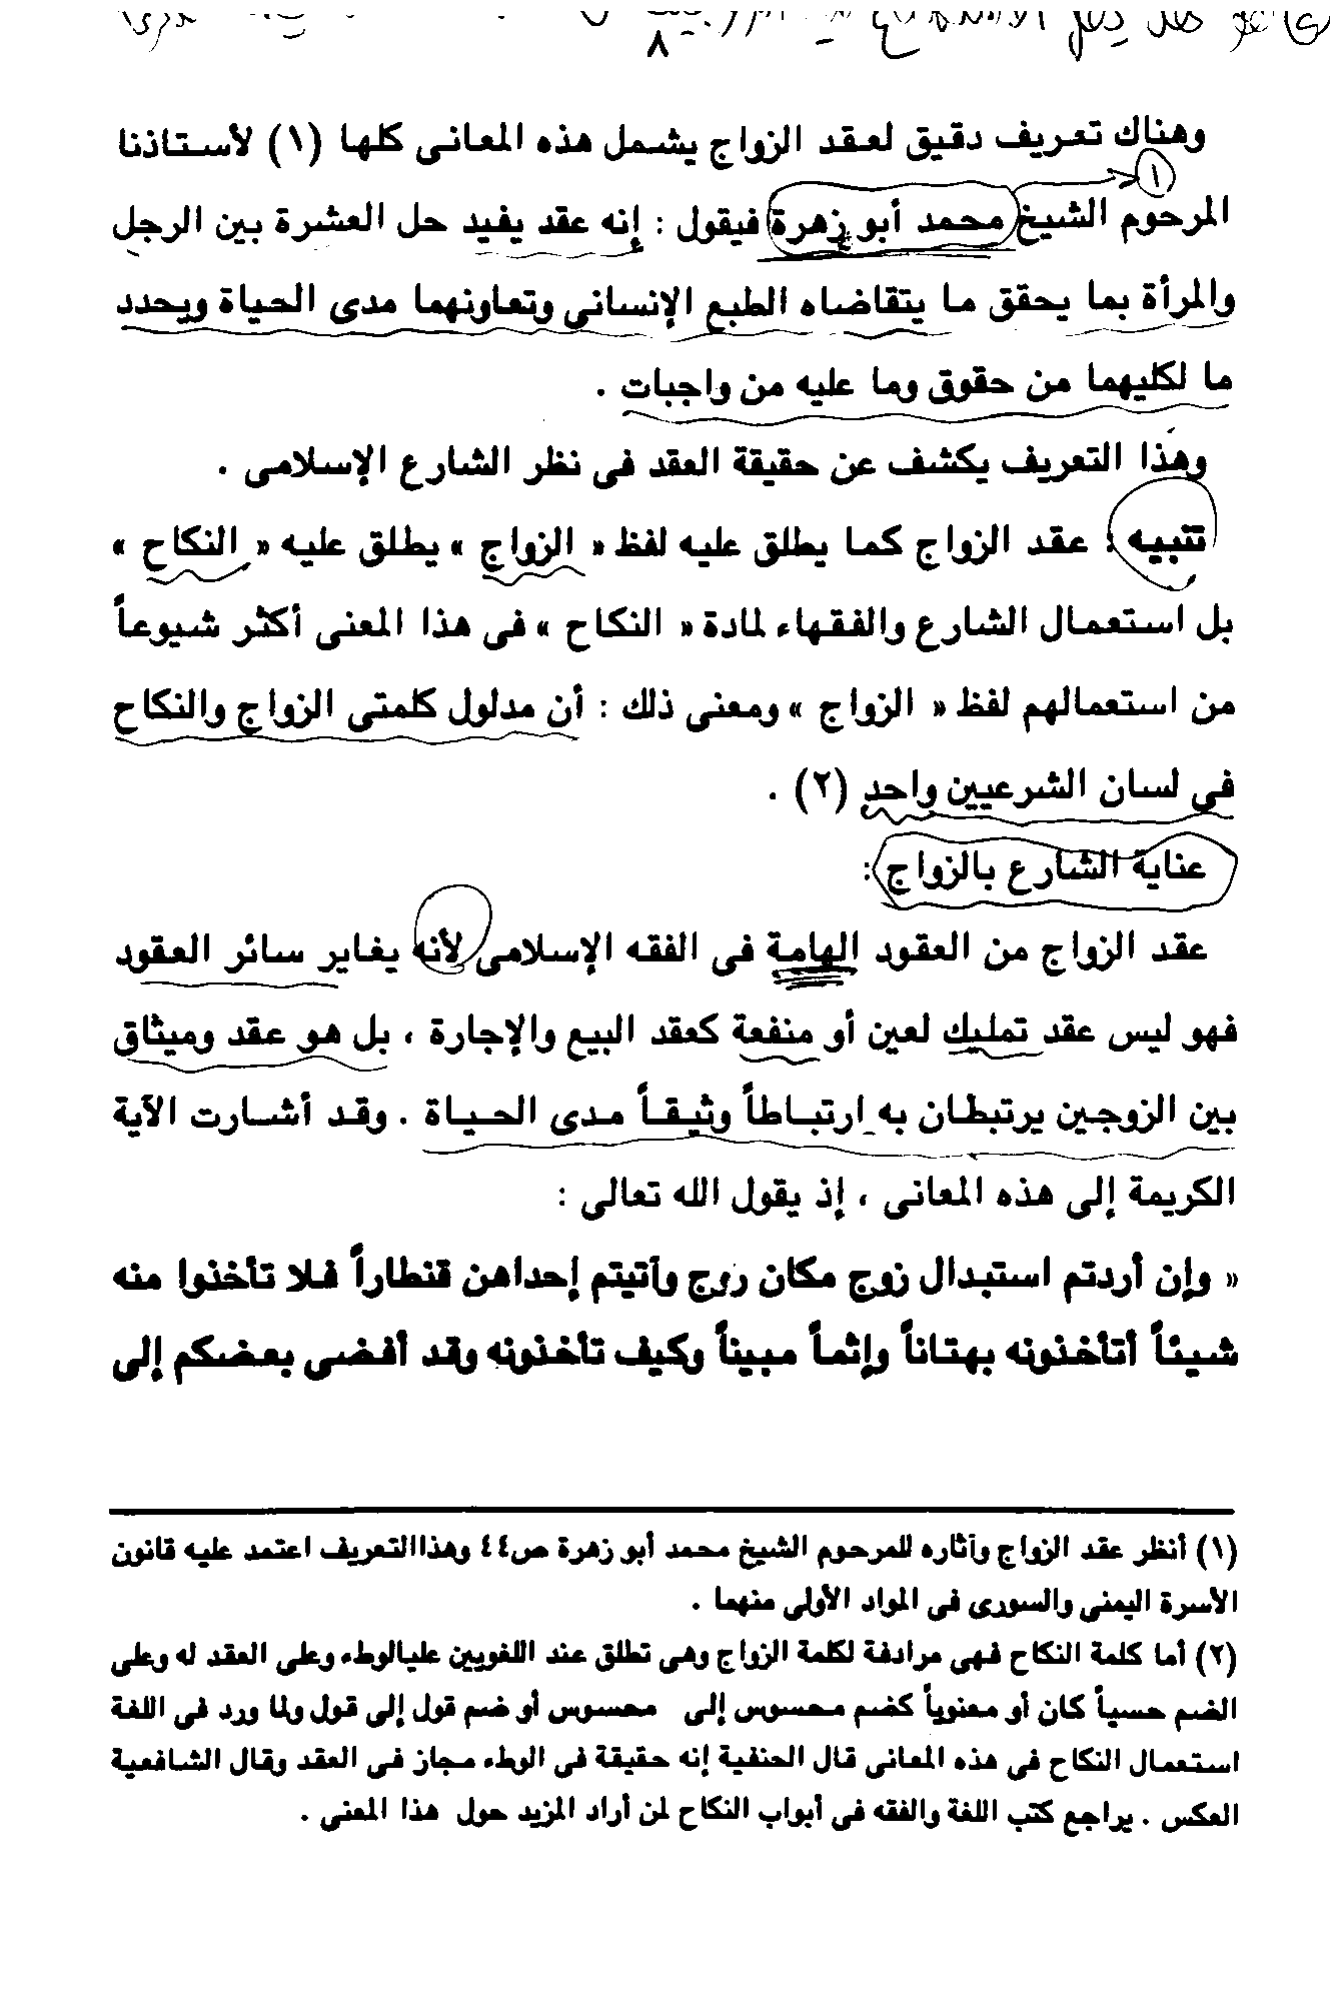 ٨
وهناك تعريف دقيق لعقد الزواج يشمل هذه المعانى كلها (١) لأستاذنا
١
المرحوم الشيخ محمد أبو زهرة فيقول : إنه عقد يفيد حل العشرة بين الرجل
والمرأة بما يحقق ما يتقاضاه الطبع الإنسانى وتعاونهما مدى الحياة ويحدد
ما لكليهما من حقوق وما عليه من واجبات .
وهذا التعريف يكشف عن حقيقة العقد فى نظر الشارع الإسلامى .
تنبيه : عقد الزواج كما يطلق عليه لفظ « الزواج » يطلق عليه « النكاح »
بل استعمال الشارع والفقهاء لمادة « النكاح » فى هذا المعنى أكثر شيوعاً
من استعمالهم لفظ « الزواج » ومعنى ذلك : أن مدلول كلمتى الزواج والنكاح
فى لسان الشرعيين واحد (٢) .
عناية الشارع بالزواج :
عقد الزواج من العقود الهامة فى الفقه الإسلامى لأنه يغاير سائر العقود
فهو ليس عقد تمليك لعين أو منفعة كعقد البيع والإجارة ، بل هو عقد وميثاق
بين الزوجين يرتبطان به ارتباطاً وثيقاً مدى الحياة . وقد أشارت الآية
الكريمة إلى هذه المعانى ، إذ يقول الله تعالى :
« وإن أردتم استبدال زوج مكان زوج وآتيتم إحداهن قنطاراً فلا تأخذوا منه
شيئاً أتأخذونه بهتاناً وإثماً مبيناً وكيف تأخذونه وقد أفضى بعضكم إلى
(١) أنظر عقد الزواج وآثاره للمرحوم الشيخ محمد أبو زهرة ص٤٤ وهذا التعريف اعتمد عليه قانون
الأسرة اليمنى والسورى فى المواد الأولى منهما .
(٢) أما كلمة النكاح فهى مرادفة لكلمة الزواج وهى تطلق عند اللغويين علىالوطء وعلى العقد له وعلى
الضم حسياً كان أو معنوياً كضم محسوس إلى محسوس أو ضم قول إلى قول ولما ورد فى اللغة
استعمال النكاح فى هذه المعانى قال الحنفية إنه حقيقة فى الوطء مجاز فى العقد وقال الشافعية
العكس . يراجع كتب اللغة والفقه فى أبواب النكاح لمن أراد المزيد حول هذا المعنى .